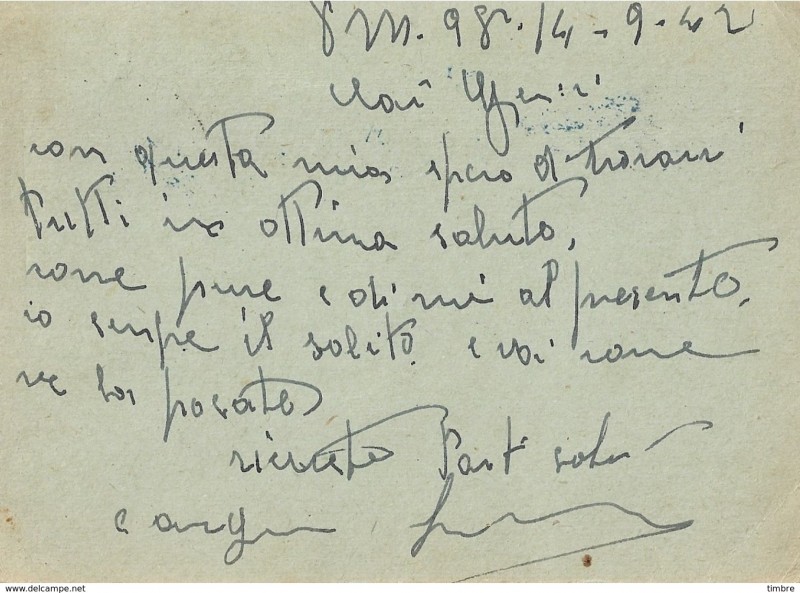 P.M. 98 14-9-42
Cari
con questa mia spero di trovarvi
tutti in ottima saluto,
come pure e di me al presento,
io sempre il solito e voi come
ve la posato
ricevete Tanti saluti
e auguri
www.delcampe.net
timbre